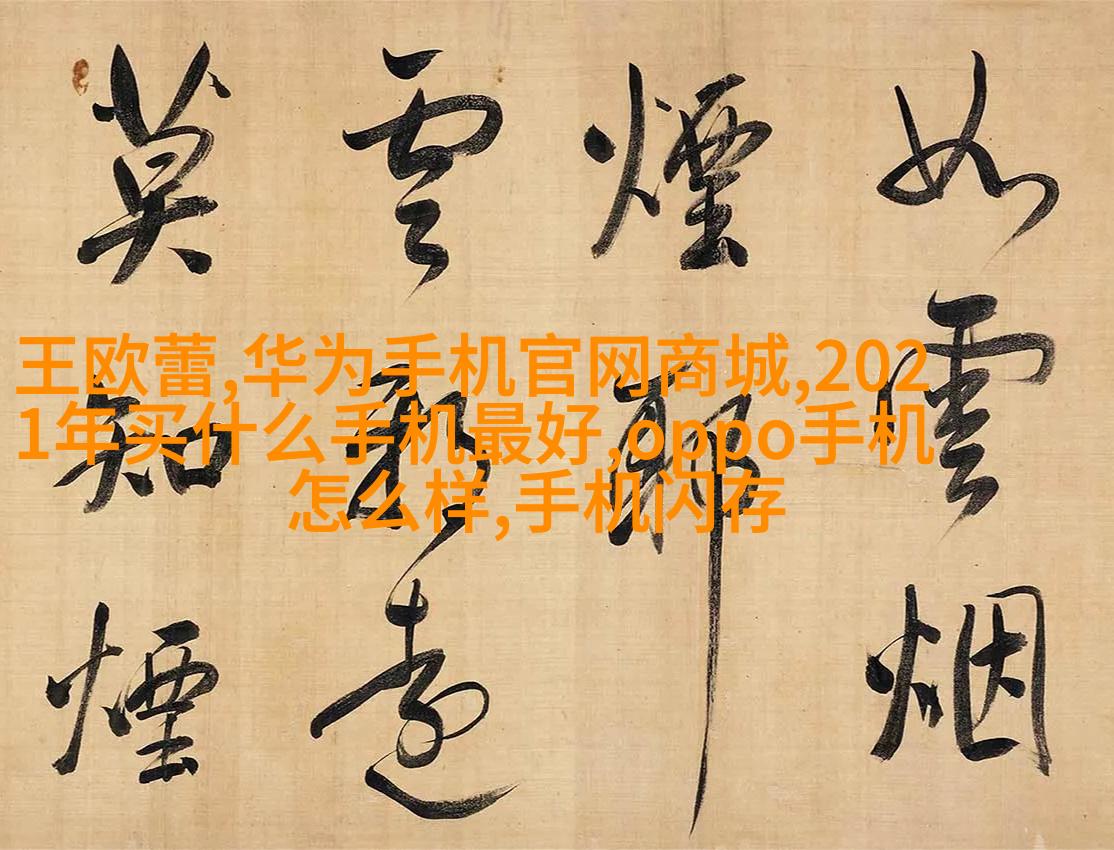 如雲烟
煙耶
雲遠
莫知煙
王欧蕾,华为手机官网商城,202
1年买什么手机最好,oppo手机
怎么样,手机闪存